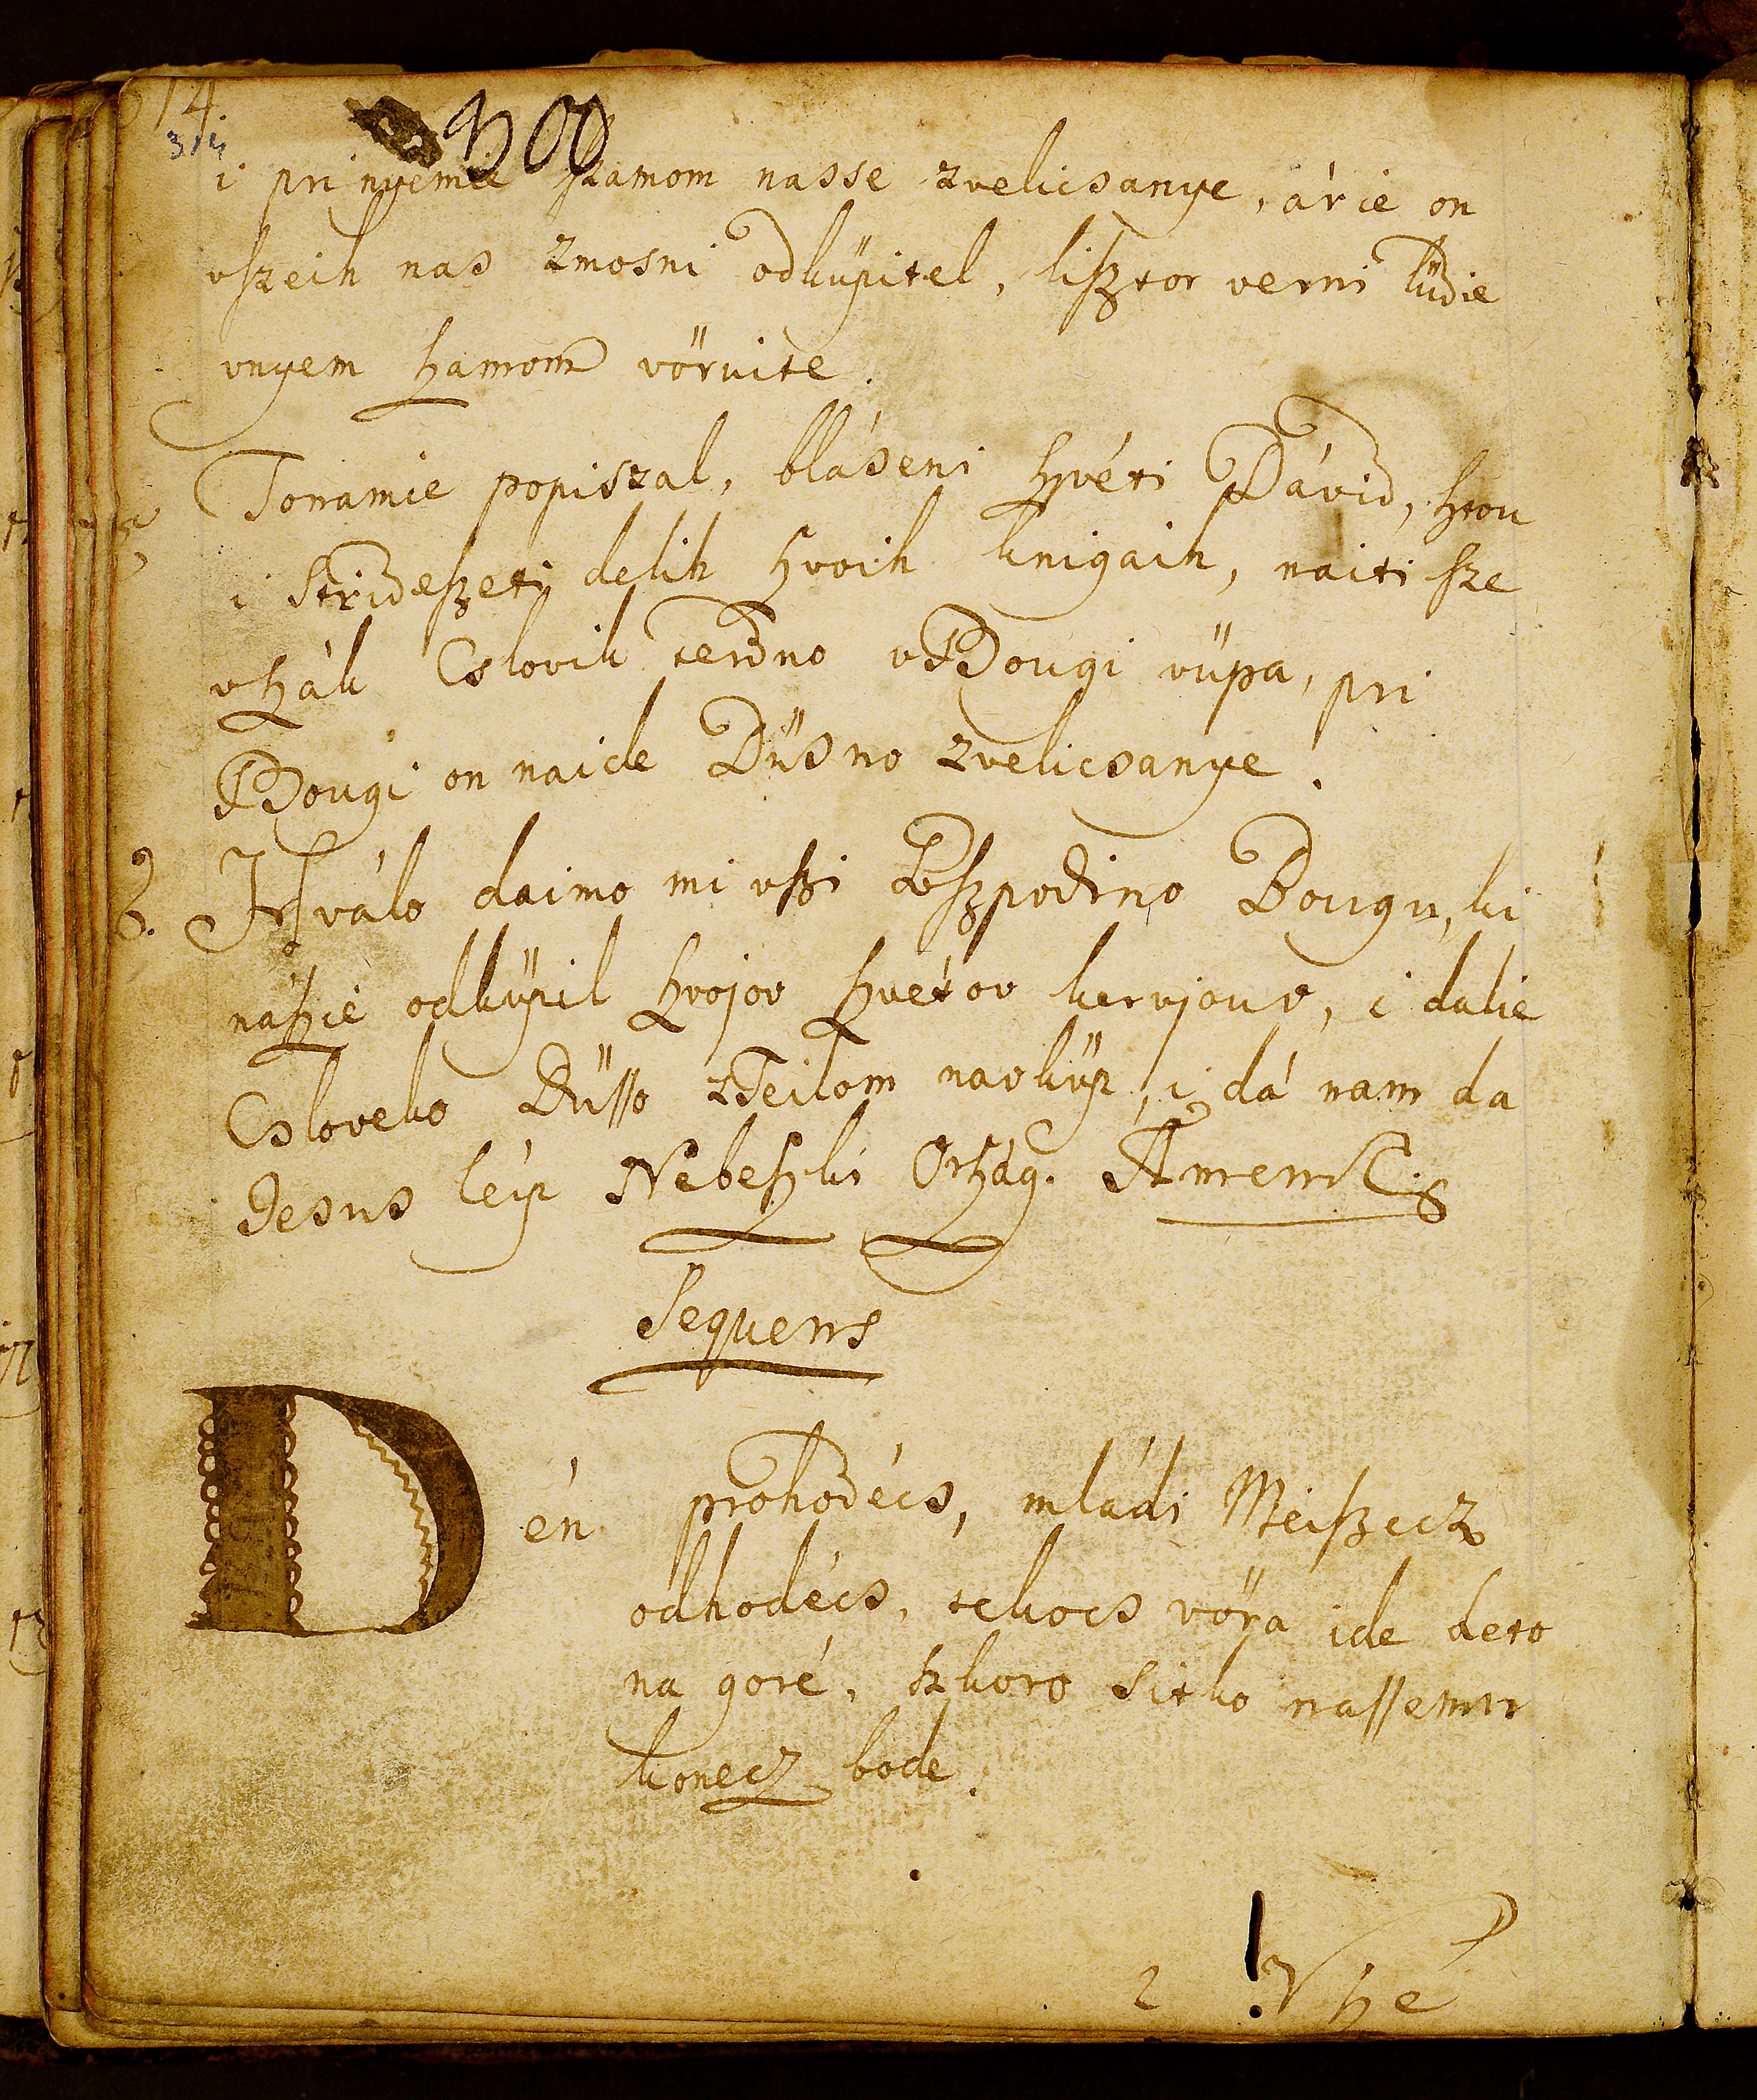 14.
314
300
i pri nyemù szamom nasse zvelicsanye, árie on
vszeih nas zmosni odküpitel, lisztor verni lüdie
vnyem szamom vörvite.
Tonamie popiszal, blá'seni szvéti Dávid, sztou
i Stridesszeti delih szvoih knigaih, naiti sze
vszák Cslovik terdno vBougi vüpa, pri
Bougi on naide Düsno zvelicsanye.
8. Hválo daimo mi vszi Goszpodino Bougu, ki
naszie odküpil szvojov szvétov kervjouv, i dalie
Csloveko Düsso zTeilom navküp, i dá nam da
Jesus leip Nebeszki Orszag. Amen
Sequens
Dén prohodécs, mládi Meiszecz
odhodécs, tekocs vöra ide deto
na goré, szkoro sitko nassemu
konecz bode.
2 ! Vszé